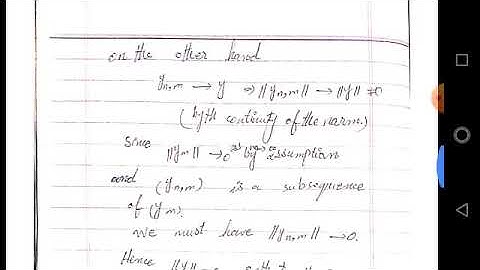 on the other hand
yn,m → y ⇒ ||yn,m|| → ||y|| ≠ 0
(by th continuity of the norm.)
since ||ym|| → 0 by assumption
and (yn,m) is a subsequence
of (ym).
we must have ||yn,m|| → 0.
Hence ||y||